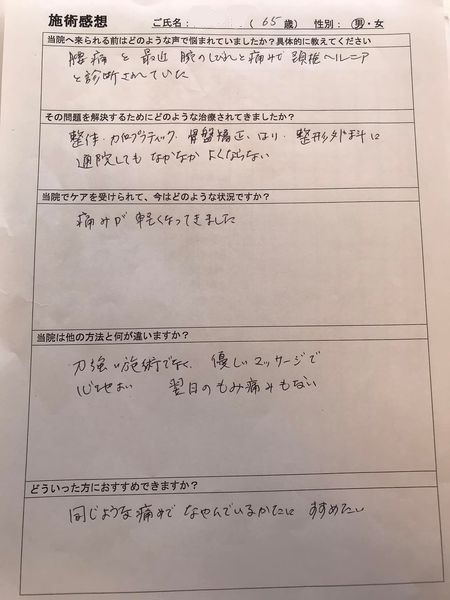 施術感想 ご氏名： （65歳） 性別：男・女
当院へ来られる前はどのような声で悩まれていましたか？具体的に教えてください
腰痛と最近 腕のしびれと痛みで 頚椎ヘルニア
と診断されていた
その問題を解決するためにどのような治療されてきましたか？
整体・カイロプラティック・骨盤矯正・はり・整形外科に
通院しても なかなか よくならない
当院でケアを受けられて、今はどのような状況ですか？
痛みが 軽くなってきました
当院は他の方法と何が違いますか？
力強い施術でなく、優しいマッサージで
心地よい 翌日のもみ痛みもない
どういった方におすすめできますか？
同じような痛みで なやんでいるかたに すすめたい